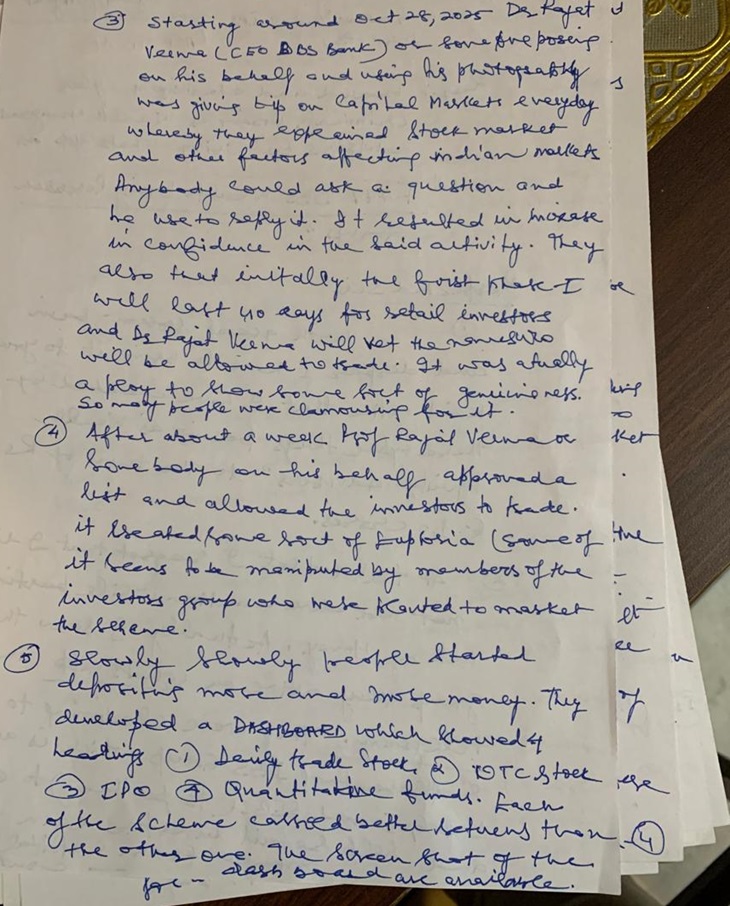 ③ Starting around Oct 28, 2025 Dr Rajat
Veerma (CEO DBS Bank) or someone posing
on his behalf and using his photography
was giving tip on Capital Markets everyday
whereby they explained Stock market
and other factors affecting indian markets
Anybody could ask a question and
he use to reply it. It resulted in increase
in confidence in the said activity. They
also that initally the first phase-I
will last 40 days for retail investors
and Dr Rajat Veerma will vet the names who
will be allowed to trade. It was atually
a ploy to show some sort of genuineness.
So many people were clamouring for it.
④ After about a week Prof Rajat Veerma or
Somebody on his behalf approved a
list and allowed the investors to trade.
it created some sort of Euphoria (some of
it seems to be maniputed by members of the
investors group who were planted to market
the scheme.
⑤ Slowly Slowly people started
depositing more and more money. They
developed a DASHBOARD which showed 4
headings ① Daily trade Stock, ② OTC Stock
③ IPO ④ Quantitative funds. Each
of the scheme carried better returns than
the other one. The Screen Shot of the
dash board are available.
ket
the
of
④